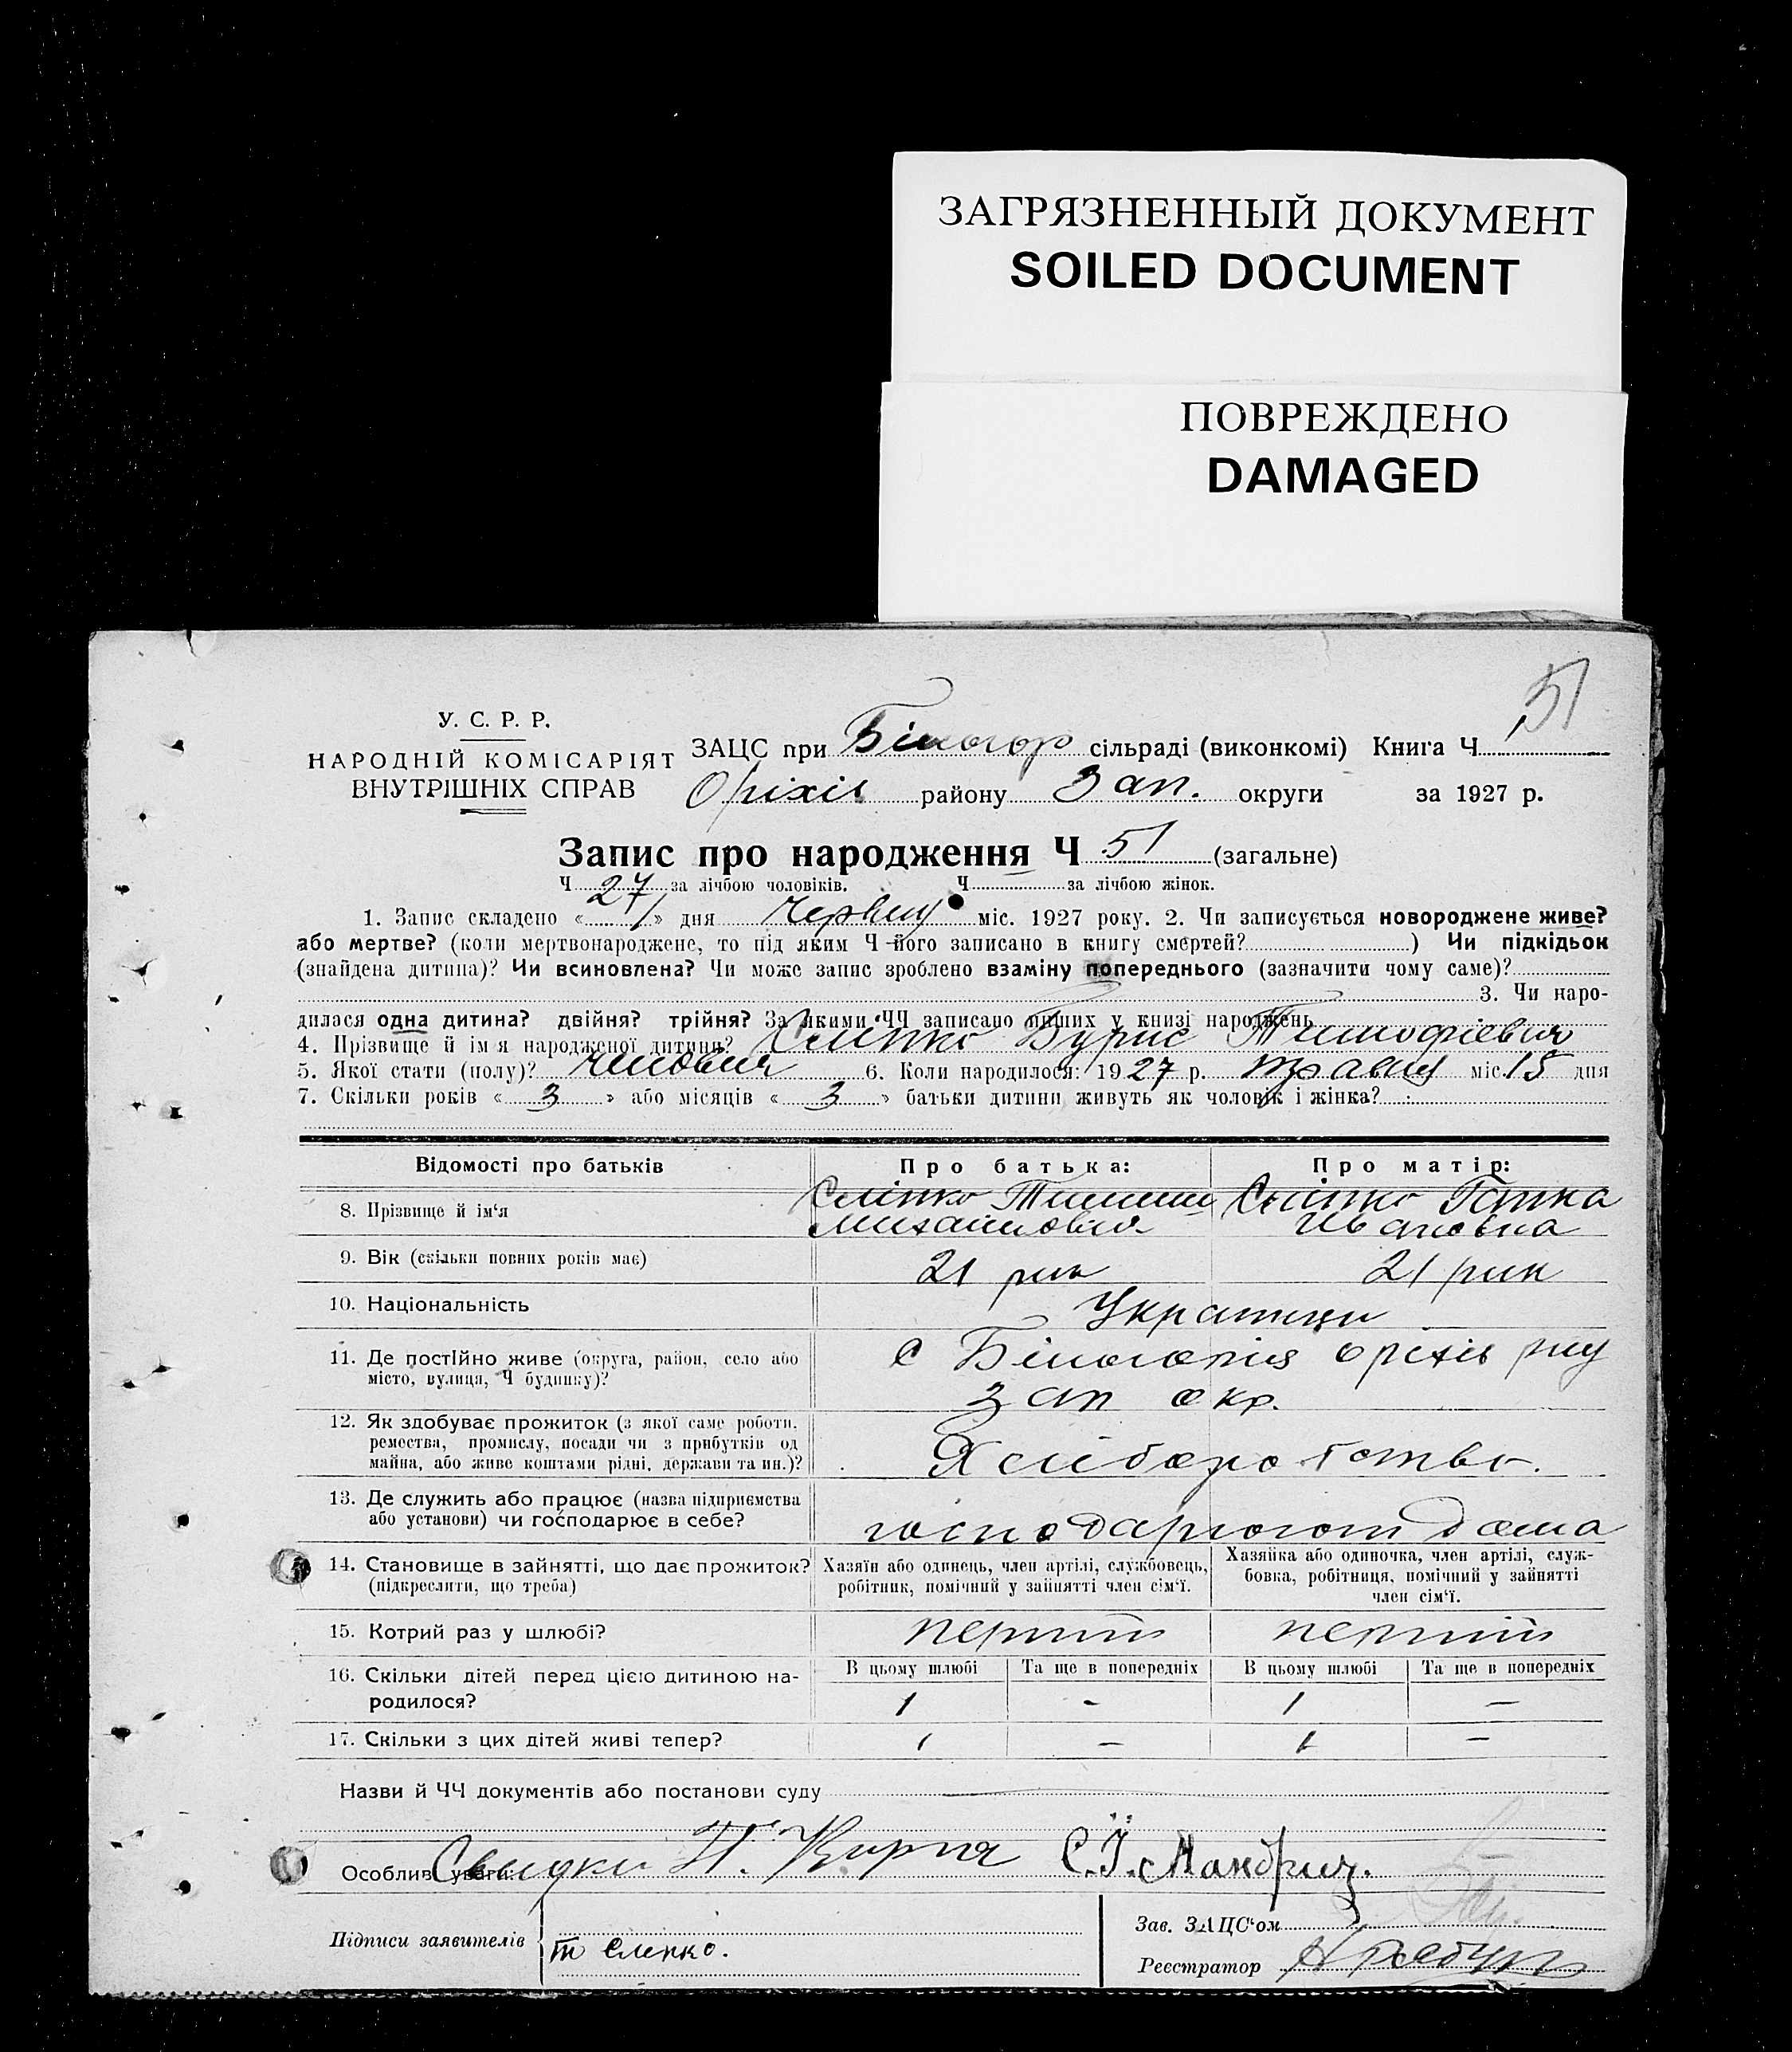 ЗАГРЯЗНЕННЫЙ ДОКУМЕНТ
SOILED DOCUMENT
ПОВРЕЖДЕНО
DAMAGED
51
У. С. Р. Р.
НАРОДНІЙ КОМІСАРІЯТ
ВНУТРІШНІХ СПРАВ
ЗАЦС при Білогор сільраді (виконкомі) Книга Ч
Оріхів району Зап. округи за 1927 р.
Запис про народження Ч 51 (загальне)
Ч 27 за лічбою чоловіків. Ч за лічбою жінок.
1. Запис складено «1» дня Червня міс. 1927 року. 2. Чи записується новороджене живе?
або мертве? (коли мертвонароджене, то під яким Ч його записано в книгу смертей? ) Чи підкідьок
(знайдена дитина)? Чи всиновлена? Чи може запис зроблено взаміну попереднього (зазначити чому саме)?
3. Чи наро-
дилася одна дитина? двійня? трійня? За якими ЧЧ записано инших у книзі народжень
4. Прізвище й ім'я народженої дитини? Сліпко Бурис Тимофієвич
5. Якої стати (полу)? чилович 6. Коли народилося: 1927 р. травня міс. 15 дня
7. Скільки років «3» або місяців «3» батьки дитини живуть як чоловік і жінка?
Відомості про батьків Про батька: Про матір:
8. Прізвище й ім'я Сліпко Тимиш Сліпко Гапка
Михайлович Ивановна
9. Вік (скільки повних років має) 21 рик 21 рик
10. Національність Украинци
11. Де постійно живе (округа, район, село або
місто, вулиця, Ч будинку)?
с Білогорія оріхів рну
зап окр.
12. Як здобуває прожиток (з якої саме роботи,
ремества, промислу, посади чи з прибутків од
майна, або живе коштами рідні, держави та ин.)?
Хлібороботство.
13. Де служить або працює (назва підприємства
або установи) чи господарює в себе?
господарюют дома
14. Становище в зайнятті, що дає прожиток?
(підкреслити, що треба)
Хазяїн або одинець, член артілі, службовець,
робітник, помічний у зайнятті член сім'ї.
Хазяйка або одиночка, член артілі, служ-
бовка, робітниця, помічний у зайнятті
член сім'ї.
15. Котрий раз у шлюбі? перший перший
16. Скільки дітей перед цією дитиною на-
родилося?
В цьому шлюбі Та ще в попередніх В цьому шлюбі Та ще в попередніх
1 - 1 -
17. Скільки з цих дітей живі тепер? 1 - 1 -
Назви й ЧЧ документів або постанови суду
Особливі уваги: Свидки Н. Кирпа С.Ї. Мандрич.
Підписи заявителів т слепко.
Зав. ЗАЦС'ом
Реєстратор